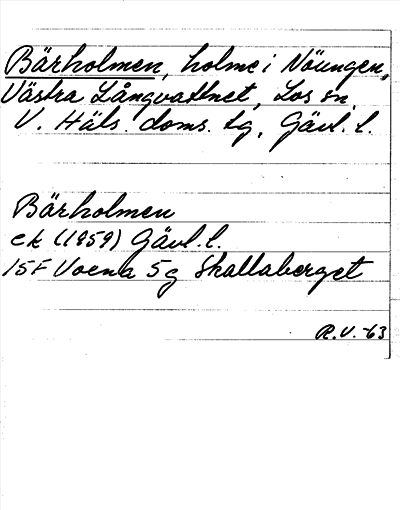 Bärholmen, holme i Nöungen,
Västra Långvattnet, Los sn.
V. Häls. doms. tg, Gävl. l.
Bärholmen
ek (1959) Gävl. l.
15F Voxna 5g Skallaberget
R.V. -63